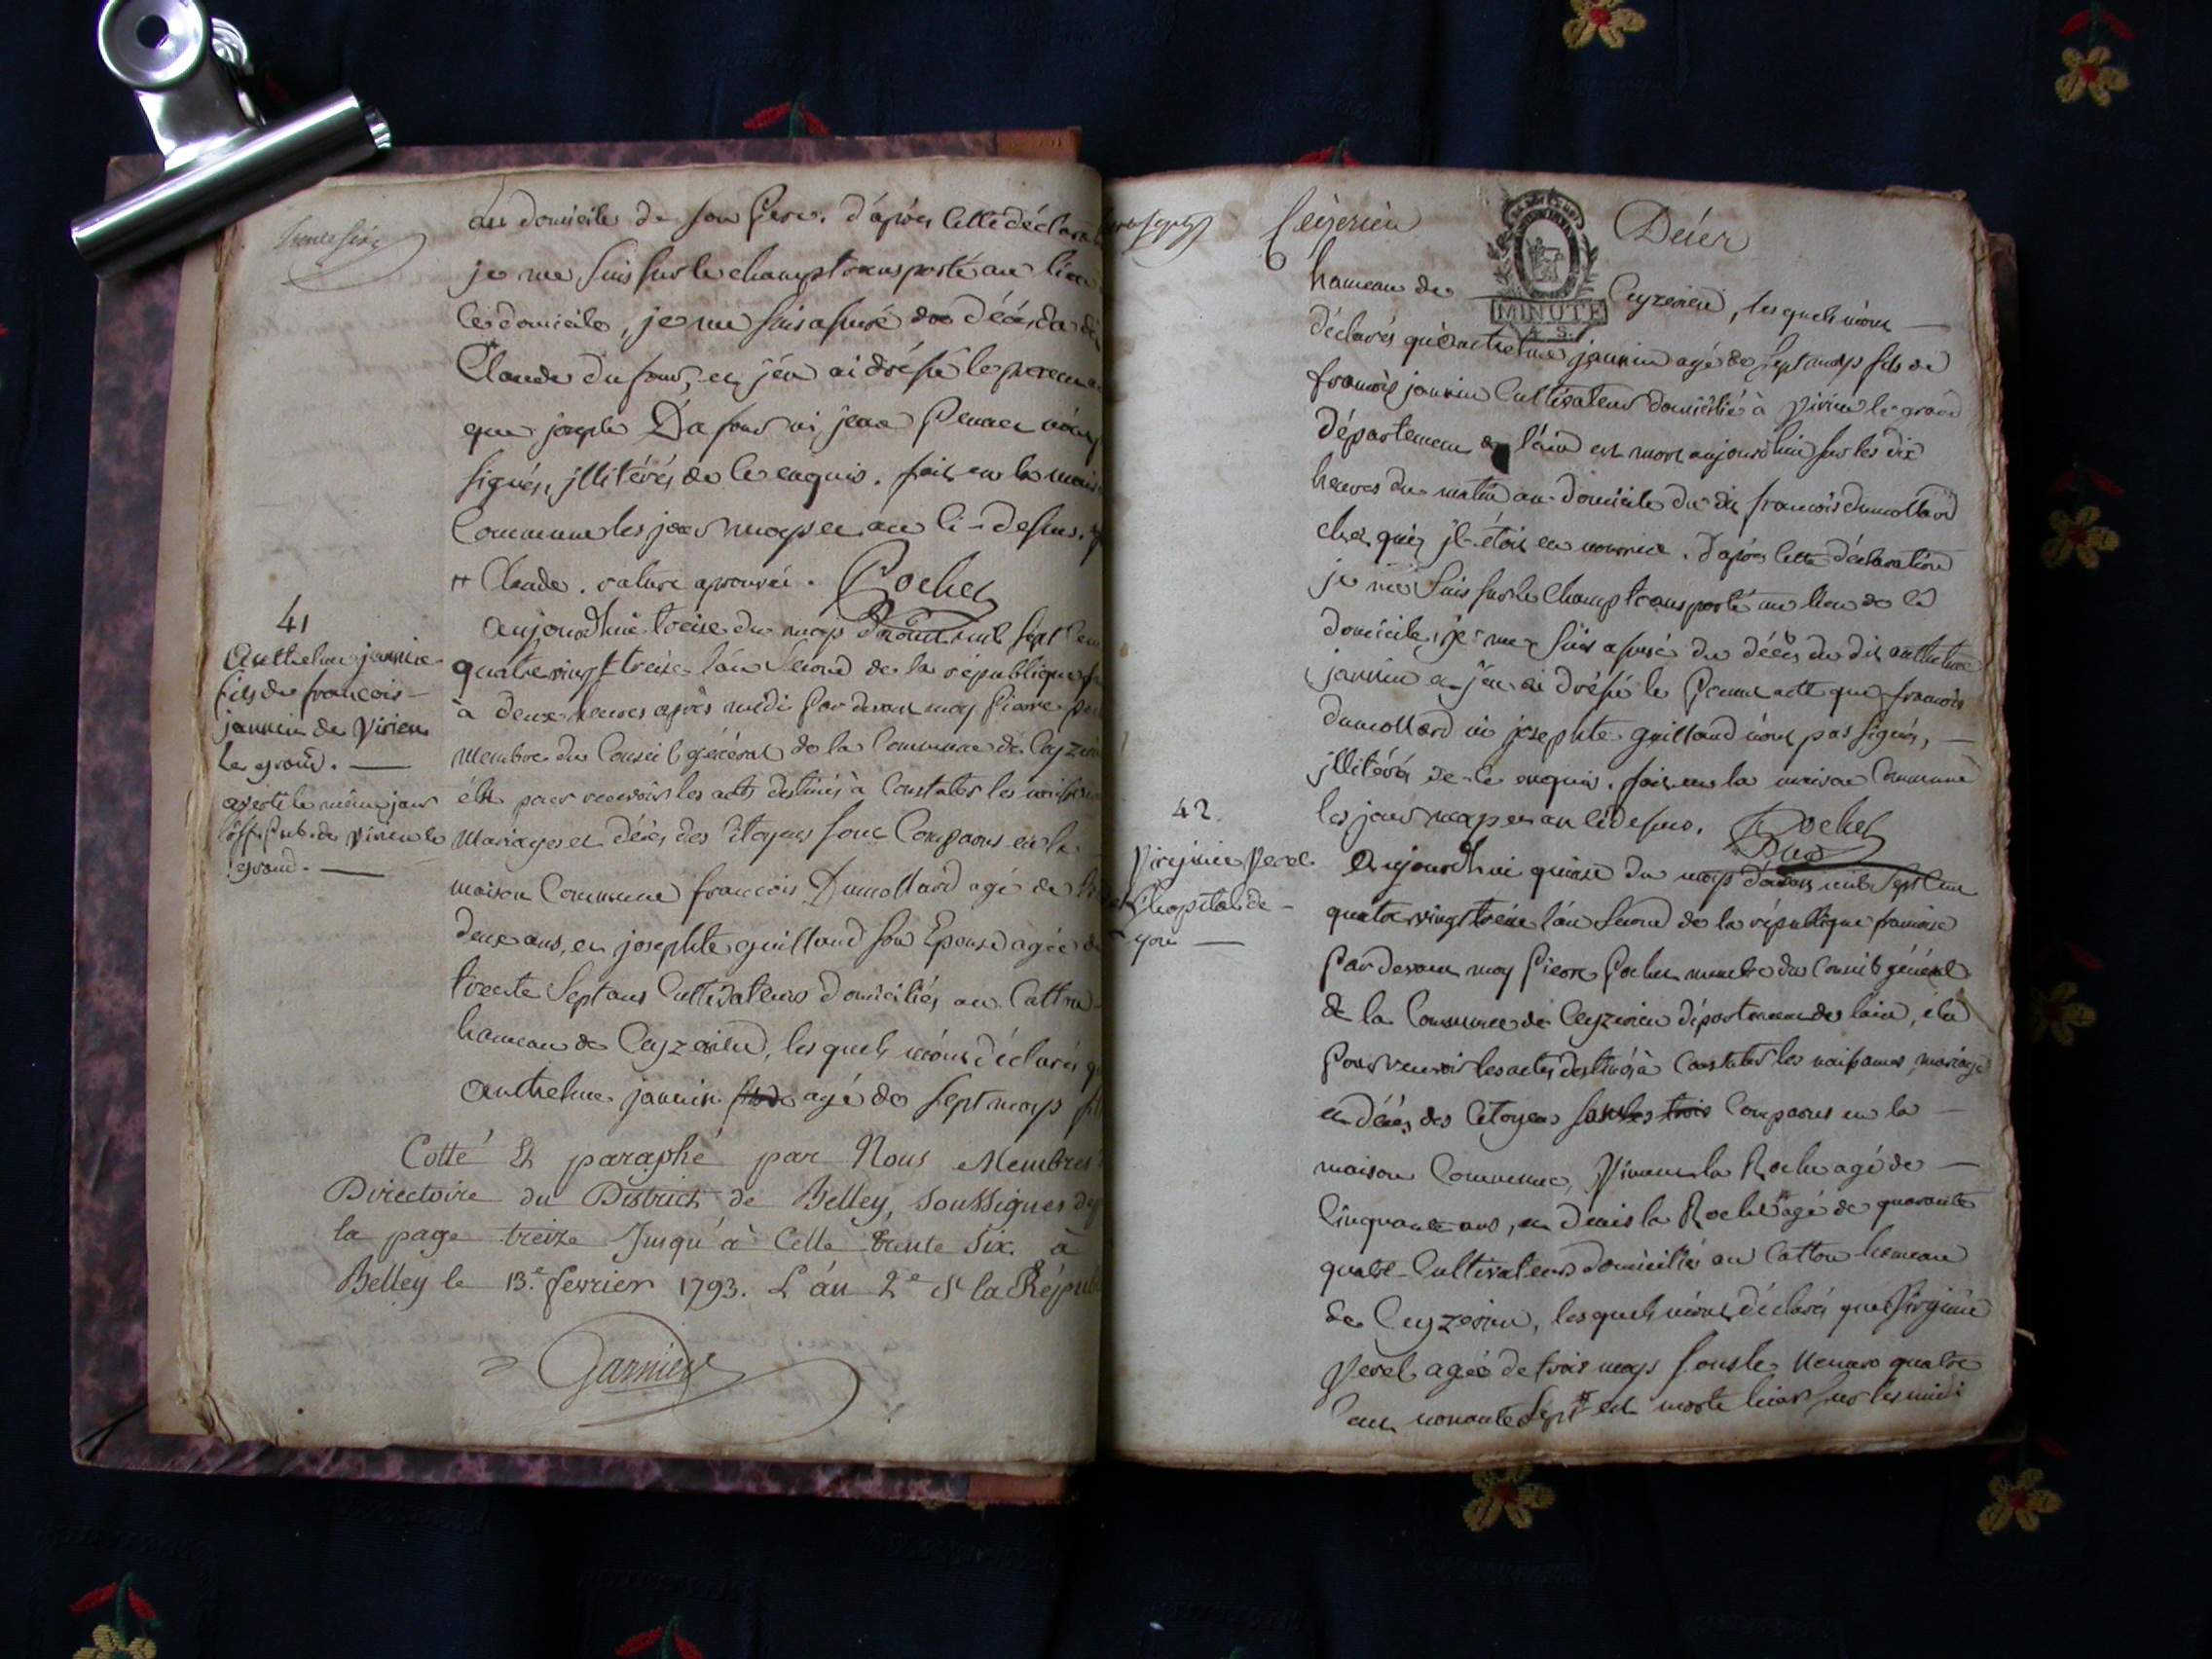 trente six
au domicile de son Pere. d'après cette déclara
je me suis sur le champ transporté au lieu
ce domicile, je me suis assuré du décès du di
Claude Dufour, et j'en ai drésé le présent
que joseph Dufour ni jean n'ont
signés, illitérés de ce enquis. fait en la mais
Commune les jour moys et an ci-dessus.
Claude. rature aprouvée. Pochet
41
Anthelme jannin
fils de françois
jannin de Virieu
le grand.
averti le même jour
l'off. Pub. de Virieu le
grand.
aujourd'hui treise du moys d'aout mil sept cen
quatre vingt treise l'an second de la république f
à deux heures après midi Par devant moy Pierre
membre du Conseil général de la Commune de Ceyzeri
élu pour recevoir les actes destinés à Constater les naissan
Mariages et décès des Citoyens sont Comparus en la
maison Commune françois Dumollard agé de
deux ans, et josephte guilland son Epouse agée de
trente Sept ans Cultivateurs domiciliés au Catton
hameau de Ceyzerieu, les quels m'ont déclarés q
anthelme jannin agé de sept moys fil
Cotté Et paraphé par Nous Membres
Directoire du District de Belley, Soussignes de
la page treize Jusqu'à Celle trente Six. à
Belley le 13.e fevrier 1793. L'án 2e d la Répub
Garnier
Ceyzerieu Décès
MINUTE
4 S.
hameau de Ceyzerieu, les quels m'ont
déclarés qu'anthelme jannin agé de sept moys fils de
françois jannin Cultivateur domicilié à Virieu le grand
département de l'ain est mort aujourd'hui sur les dix
heures du matin au domicile du dit françois dumollard
chez qui il étoit en nourrice. d'après cette déclaration
je me suis sur le champ transporté au lieu de ce
domicile, je me suis assuré du décès du dit anthelme
jannin et j'en ai drésé le Present acte que françois
dumollard ni josephte guilland n'ont pas signés,
illitérés de ce enquis. fait en la maison Commune
les jour moys et an ci dessus. Pochet
42
Virginie Verel
de l'hopital de
yon
Aujourd'hui quinse du moys d'aout mil Sept Cent
quatre vingt treise l'an Second de la république françoise
Par devant moy Pierre Pochet membre du Conseil général
de la Commune de Ceyzerieu département de l'ain, élu
Pour recevoir les actes destinés à Constater les naissances, mariages
et décès des Citoyens sont Comparus en la
maison Commune, Vincent la Roche agé de
Cinquante ans, et Denis la Roche agé de quarante
quatre Cultivateurs domiciliés au Catton hameau
de Ceyzerieu, les quels m'ont déclarés que Virginie
Verel agée de trois moys sous le Numero quatre
cent nonante Sept est morte hier sur les midi